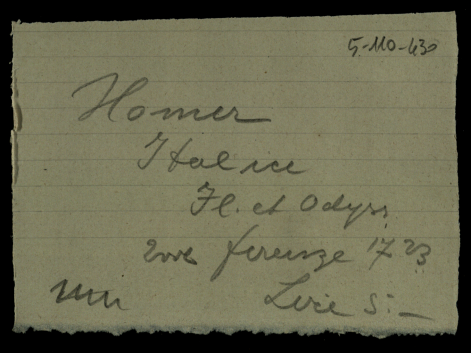 5-110-430
Homer
Italice
Il. et Odyss.
2 vol. firenze 1723
Lire 5:–